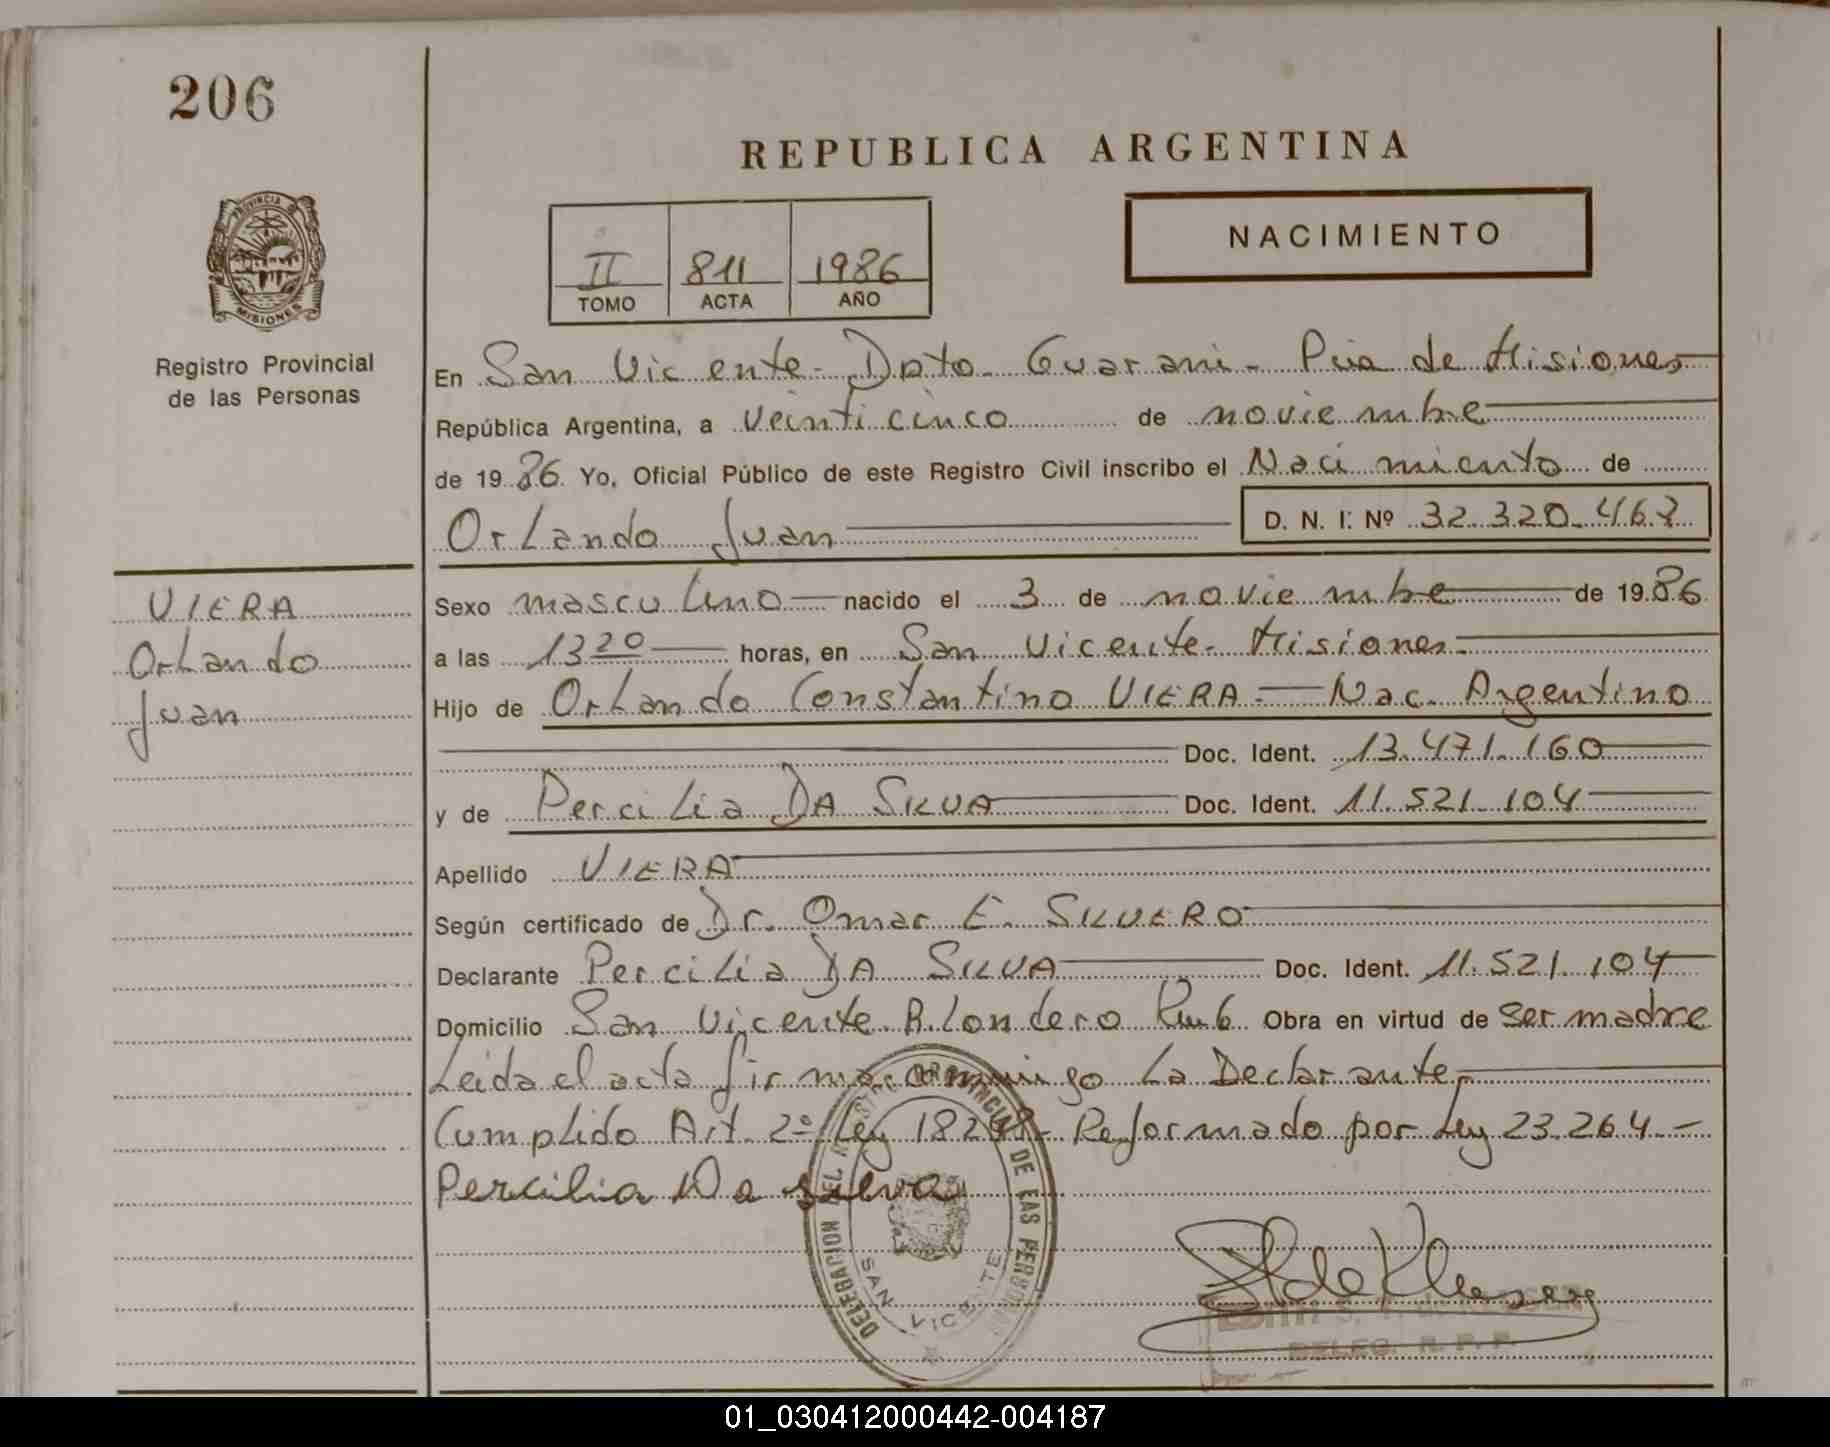 206
PROVINCIA DE
MISIONES
Registro Provincial
de las Personas
REPUBLICA ARGENTINA
II 811 1986
TOMO ACTA AÑO
NACIMIENTO
En San Vicente - Dpto. Guarani - Pcia de Misiones
República Argentina, a veinticinco de noviembre
de 1986 Yo, Oficial Público de este Registro Civil inscribo el Nacimiento de
Orlando Juan D. N. I: Nº 32.320.463
VIERA
Orlando
Juan
Sexo masculino nacido el 3 de noviembre de 1986
a las 13 20 horas, en San Vicente - Misiones.
Hijo de Orlando Constantino VIERA - Nac. Argentino
Doc. Ident. 13.471.160
y de Percilia DA SILVA Doc. Ident. 11.521.104
Apellido VIERA
Según certificado de Dr. Omar E. SILVERO
Declarante Percilia DA SILVA Doc. Ident. 11.521.104
Domicilio San Vicente Obra en virtud de ser madre
Leida el acta firma conmigo La Declarante.
Cumplido Art. 2º Ley 18248 - Reformado por Ley 23.264 -
Percilia Da silva
DELEGACION DEL REGISTRO PROVINCIAL DE LAS PERSONAS
SAN VICENTE
DELEG. R. P. P.
01_030412000442-004187